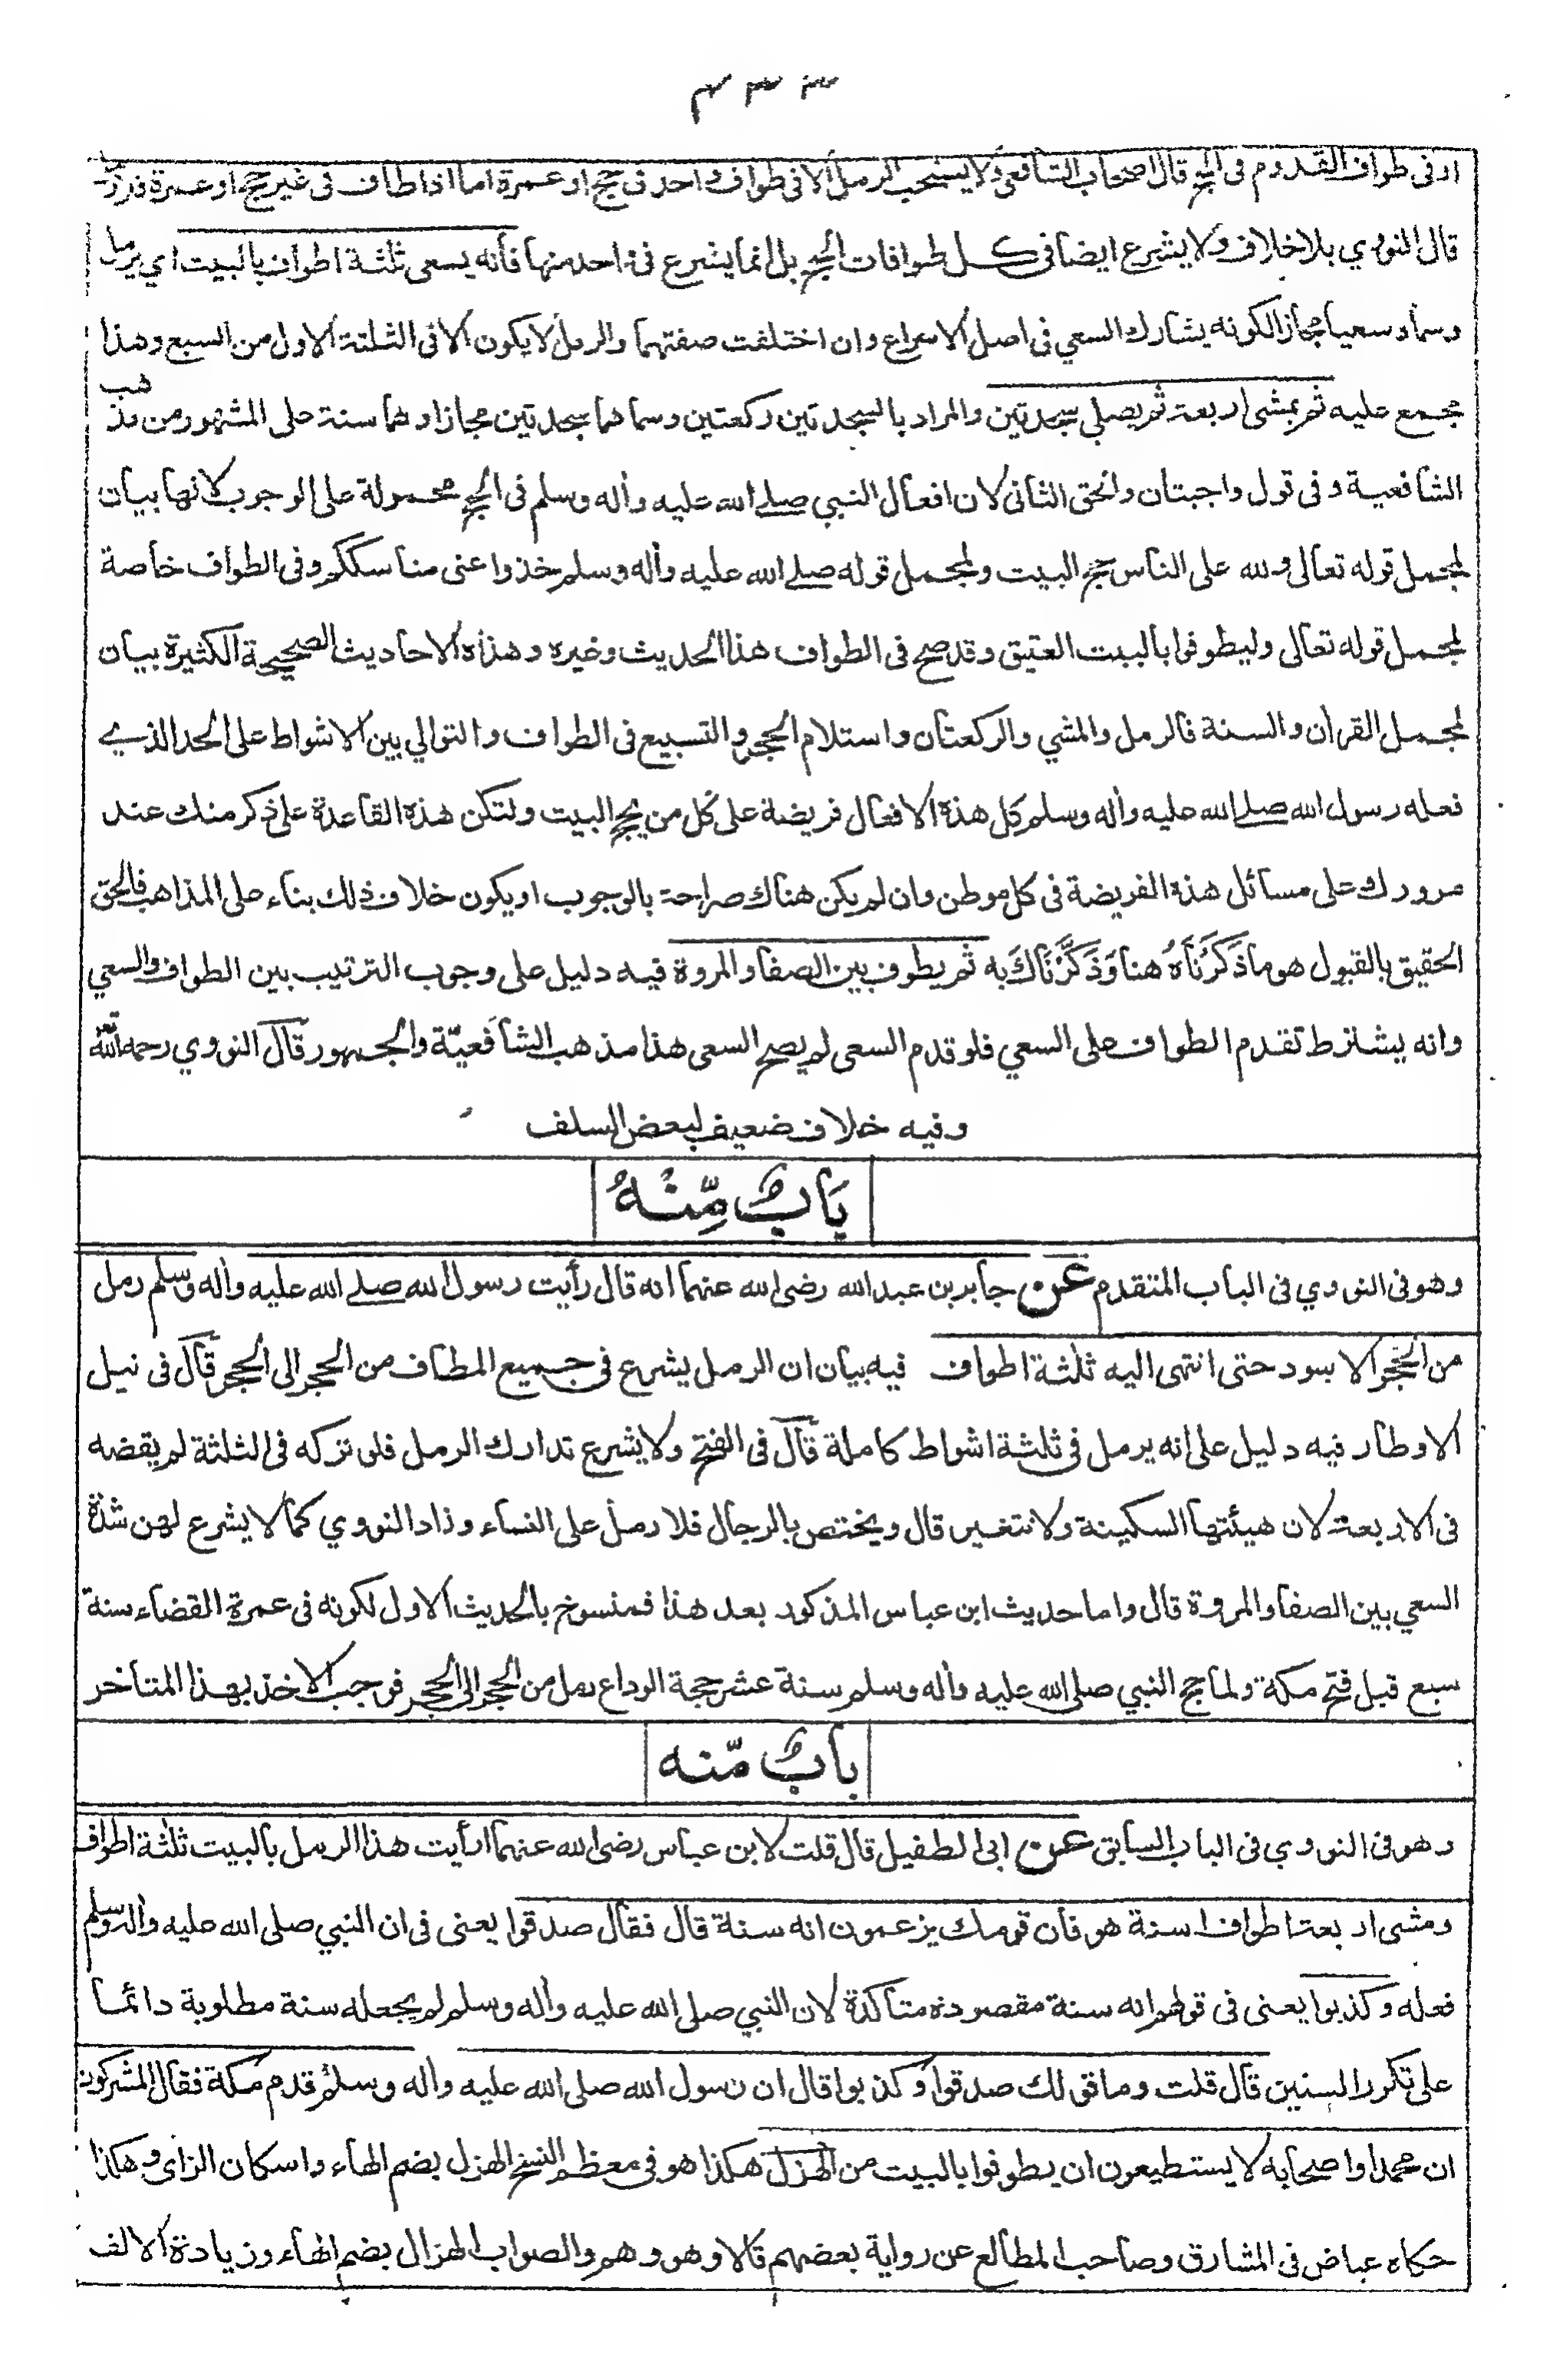 او فى طواف القدوم فى الحج قال اصحاب الشافعى ولا يستحب الرمل الا فى طواف واحد فى حج او عمرة اما اذا طاف فى غير حج او عمرة فلا رمل
قال النووي بلا خلاف ولا يشرع ايضا فى كل طوافات الحج بل انما يشرع فى واحد منها فأنه يسعى ثلثة اطواف بالبيت اي يرمل
وسماه سعيا مجازا لكونه يشارك السعي فى اصل الاسراع وان اختلفت صفتهما والرمل لا يكون الا فى الثلثة الاول من السبع وهذا
مجمع عليه ثم يمشى اربعة ثم يصلي سجدتين والمراد بالسجدتين ركعتين وسماهما سجدتين مجازا وهما سنة على المشهور من مذهب
الشافعية وفى قول واجبتان والحق الثانى لان افعال النبي صلى الله عليه وأله وسلم فى الحج محمولة على الوجوب لانها بيان
لمجمل قوله تعالى ولله على الناس حج البيت ولمجمل قوله صلى الله عليه وأله وسلم خذوا عنى مناسككم وفى الطواف خاصة
لمجمل قوله تعالى وليطوفوا بالبيت العتيق وقد صح فى الطواف هذا الحديث وغيره وهذه الاحاديث الصحيحة الكثيرة بيان
لمجمل القرأن والسنة فالرمل والمشي والركعتان واستلام الحجر والتسبيع فى الطواف والتوالي بين الاشواط على الحد الذي
فعله رسول الله صلى الله عليه وأله وسلم كل هذه الافعال فريضة على كل من يحج البيت ولتكن هذه القاعدة على ذكر منك عند
مرورك على مسائل هذه الفريضة فى كل موطن وان لم يكن هناك صراحة بالوجوب او يكون خلاف ذلك بناء على المذاهب فالحق
الحقيق بالقبول هو ما ذَكَرْنَاهُ هنا وَذَكَّرْنَاكَ به ثم يطوف بين الصفا والمروة فيه دليل على وجوب الترتيب بين الطواف والسعي
وانه يشترط تقدم الطواف على السعي فلو قدم السعى لم يصح السعى هذا مذهب الشافعيّة والجمهور قال النووي رحمه الله تعالى
وفيه خلاف ضعيف لبعض السلف
بَابٌ مِّنْهُ
وهو فى النووي فى الباب المتقدم عن جابر بن عبد الله رضى الله عنهما انه قال رأيت رسول الله صلى الله عليه وأله وسلم رمل
من الحجر الاسود حتى انتهى اليه ثلثة اطواف فيه بيان ان الرمل يشرع فى جميع المطاف من الحجر الى الحجر قال فى نيل
الاوطار فيه دليل على انه يرمل فى ثلثة اشواط كاملة قال فى الفتح ولا يشرع تدارك الرمل فلو تركه فى الثلثة لم يقضه
فى الاربعة لان هيئتها السكينة ولا تتغير قال ويختص بالرجال فلا رمل على النساء وزاد النووي كما لا يشرع لهن شدة
السعي بين الصفا والمروة قال واما حديث ابن عباس المذكور بعد هذا فمنسوخ بالحديث الاول لكونه فى عمرة القضاء سنة
سبع قبل فتح مكة ولما حج النبي صلى الله عليه وأله وسلم سنة عشر حجة الوداع رمل من الحجر الى الحجر فوجب الاخذ بهذا المتاخر
بابٌ مّنه
وهو فى النووي فى الباب السابق عن ابى الطفيل قال قلت لابن عباس رضى الله عنهما ارأيت هذا الرمل بالبيت ثلثة اطواف
ومشى اربعة اطواف اسنة هو فأن قومك يزعمون انه سنة قال فقال صدقوا يعنى فى ان النبي صلى الله عليه وأله وسلم
فعله وكذبوا يعنى فى قولهم انه سنة مقصودة متأكدة لان النبي صلى الله عليه وأله وسلم لم يجعله سنة مطلوبة دائما
على تكرر السنين قال قلت وما قولك صدقوا وكذبوا قال ان رسول الله صلى الله عليه وأله وسلم قدم مكة فقال المشركون
ان محمدا واصحابه لا يستطيعون ان يطوفوا بالبيت من الهزل هكذا هو فى معظم النسخ الهزل بضم الهاء واسكان الزاى وهكذا
حكاه عياض فى المشارق وصاحب المطالع عن رواية بعضهم قالا وهو وهم والصواب الهزال بضم الهاء وزيادة الالف